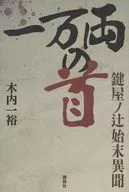 一万両の首
鍵屋ノ辻始末異聞
木内一裕
講談社